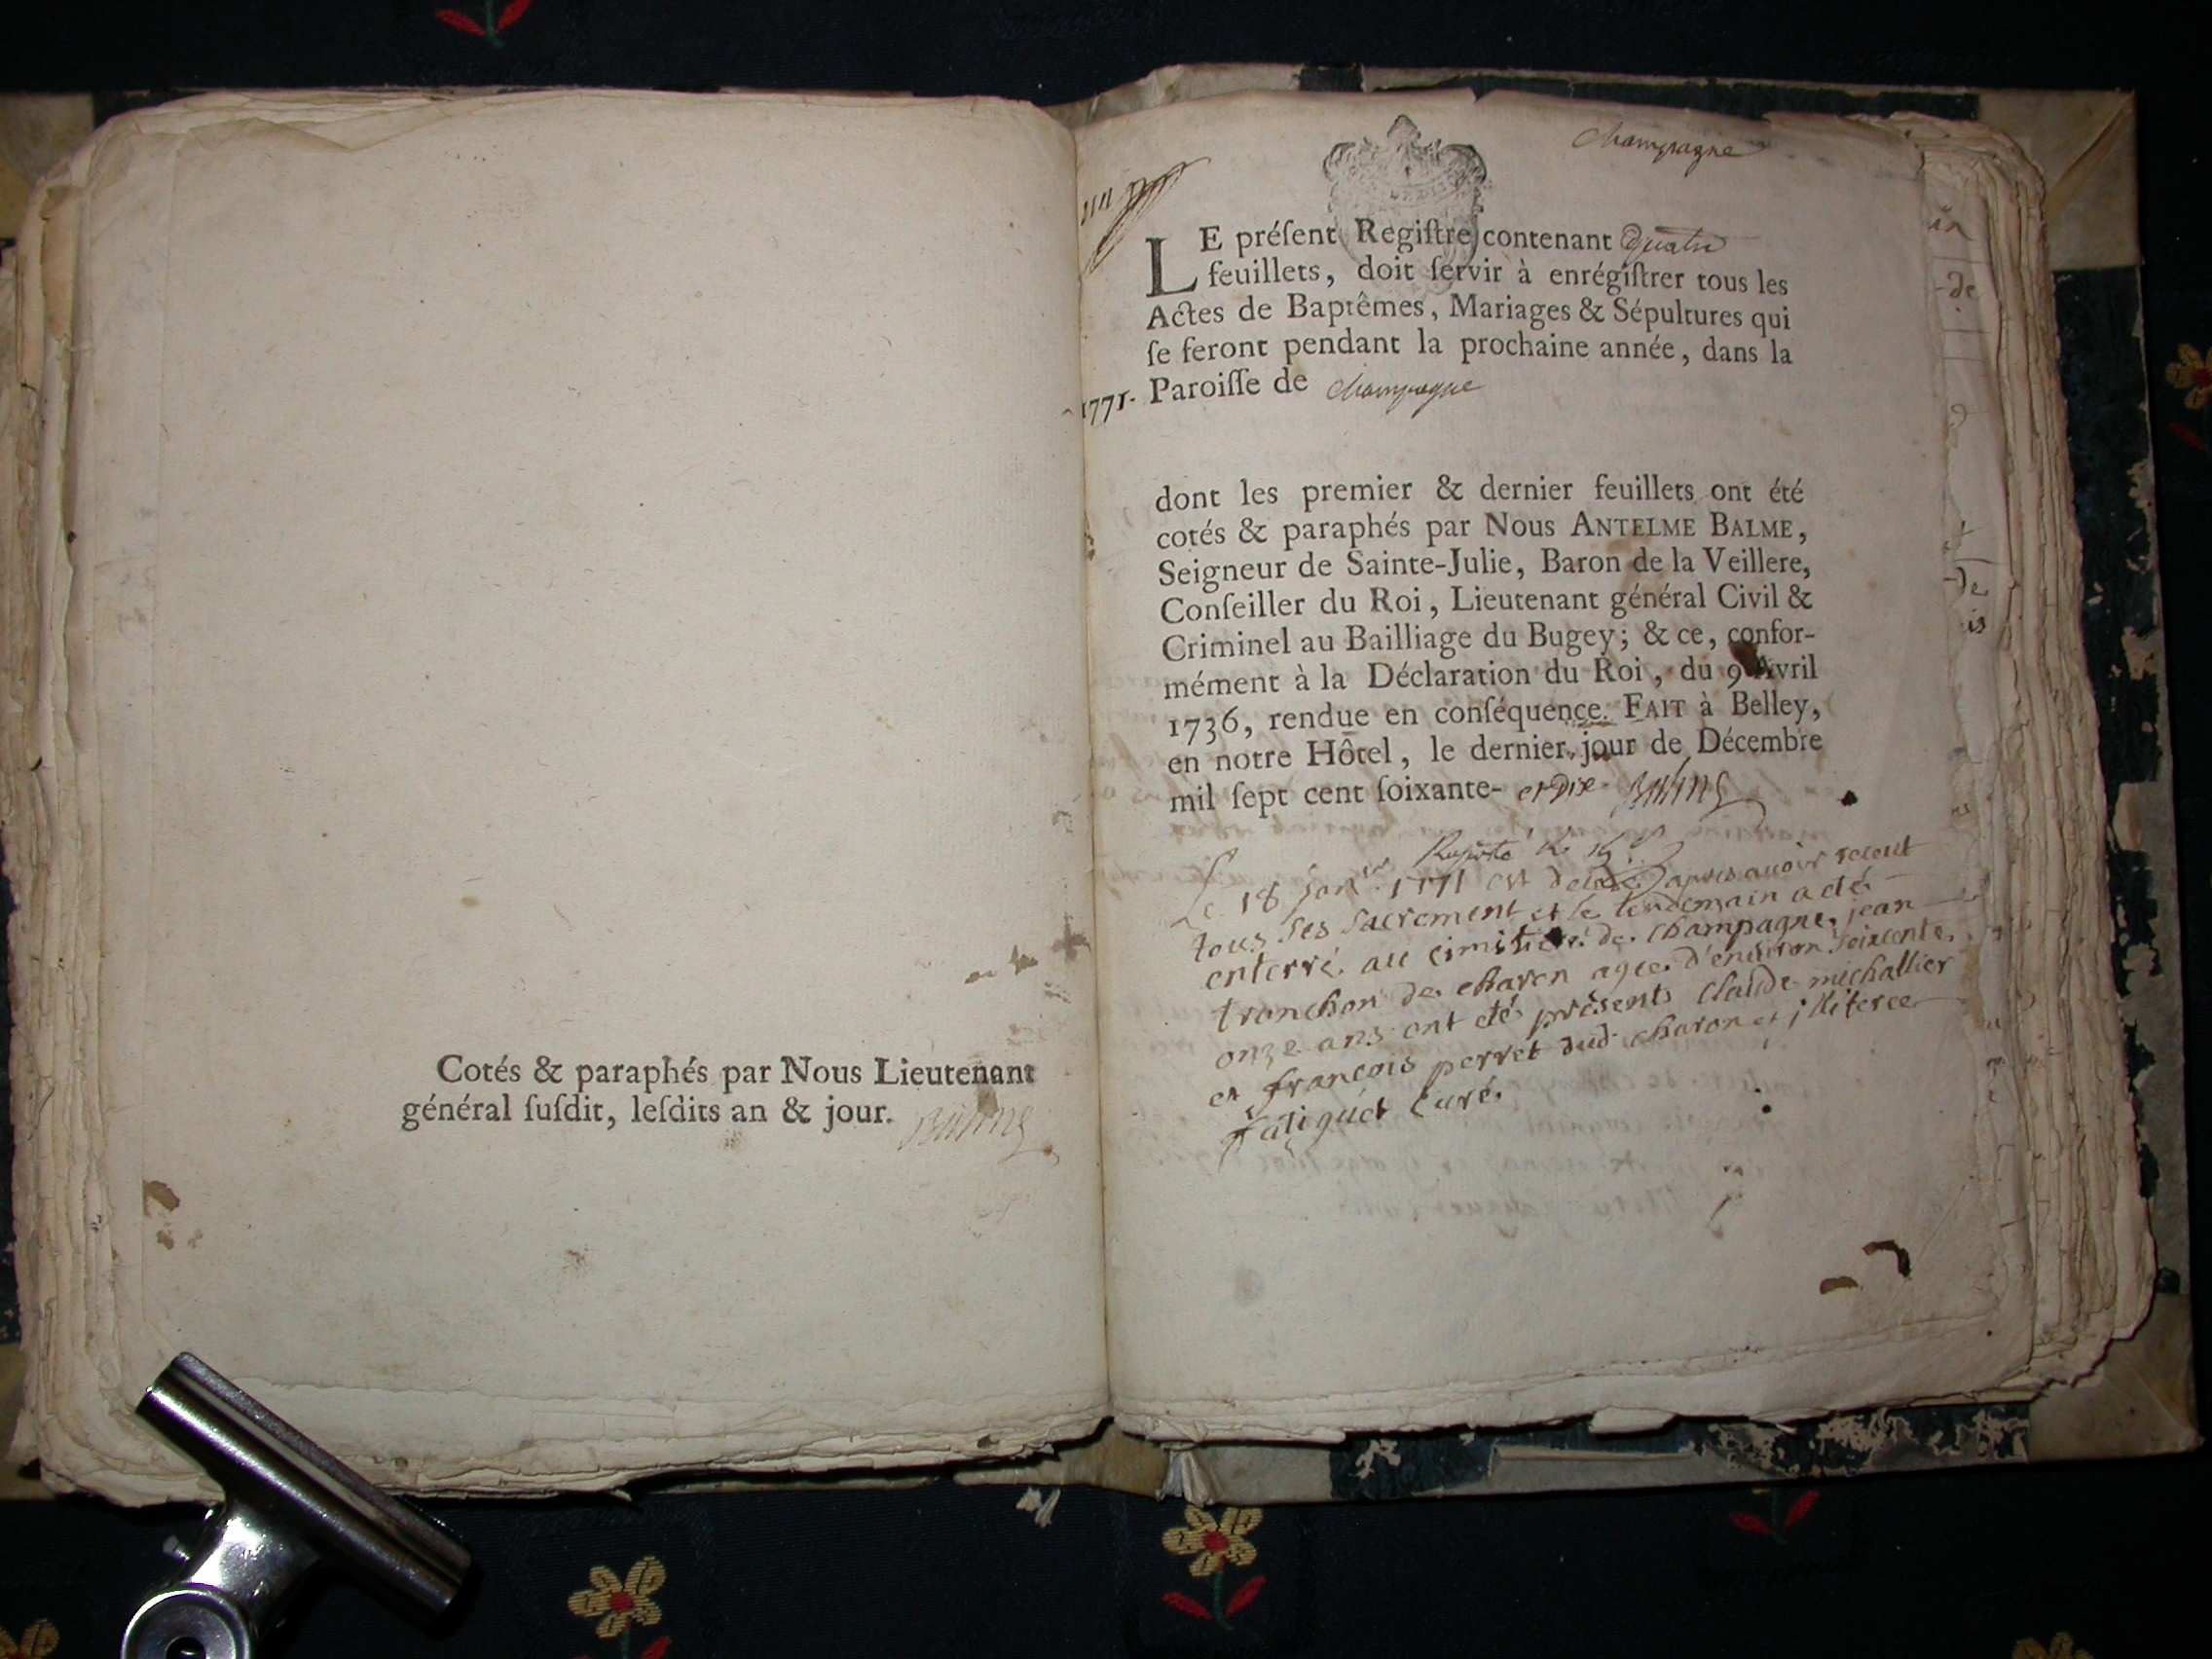 Cotés & paraphés par Nous Lieutenant
général ſuſdit, leſdits an & jour.
Champagne
LE préſent Regiſtre contenant quatre
feuillets, doit ſervir à enrégiſtrer tous les
Actes de Baptêmes, Mariages & Sépultures qui
ſe feront pendant la prochaine année, dans la
1771. Paroiſſe de Champagne
dont les premier & dernier feuillets ont été
cotés & paraphés par Nous ANTELME BALME,
Seigneur de Sainte-Julie, Baron de la Veillere,
Conſeiller du Roi, Lieutenant général Civil &
Criminel au Bailliage du Bugey; & ce, confor-
mément à la Déclaration du Roi, du 9 Avril
1736, rendue en conſéquence. FAIT à Belley,
en notre Hôtel, le dernier jour de Décembre
mil ſept cent ſoixante- et dix
Le 18 janer 1771 est decedé apres avoir receut
tous ses sacrement et le lendemain a eté
enterré au cimitiere de champagne, jean
tronchon de charon agee d'environ soixente
onze ans ont eté présents claude michallier
et francois perret dud charon et illiteree
fatiguet curé.